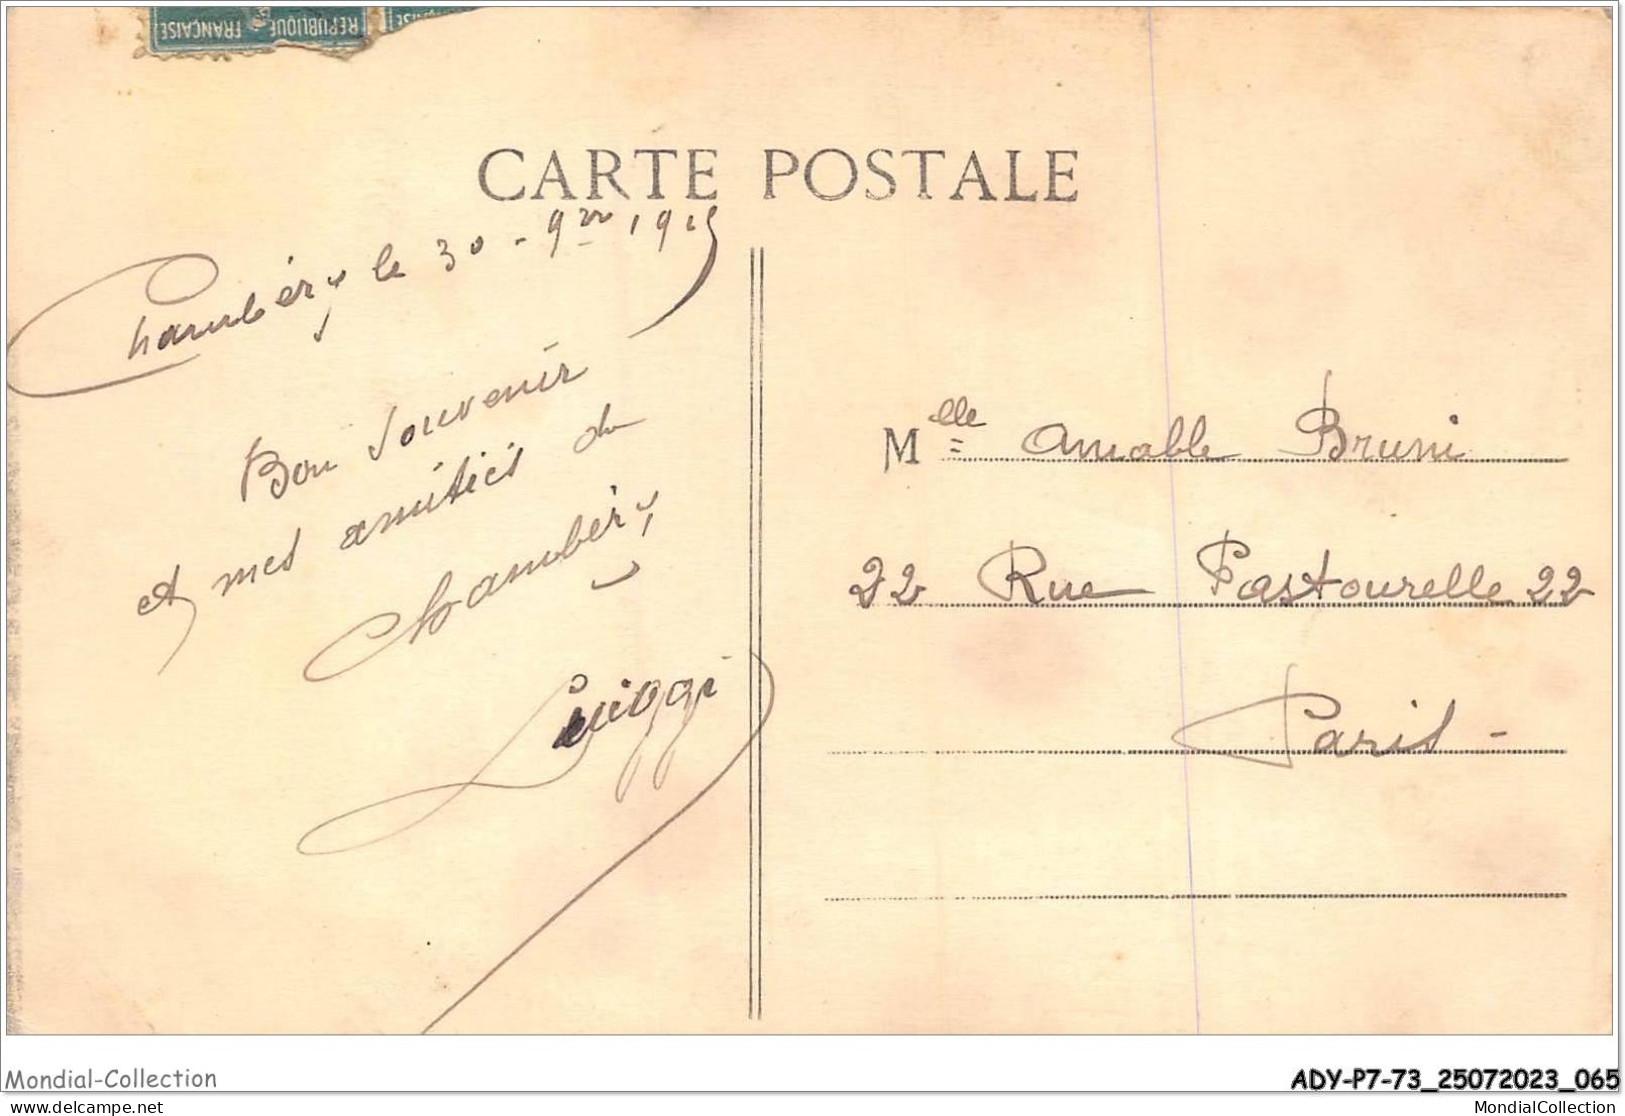 RÉPUBLIQUE FRANÇAISE
CARTE POSTALE
Chambéry le 30 - 9bre 1915
Bon Souvenir
et mes amitiés de
Chambéry
Luiggi
Mlle Amable Bruni
22 Rue Pastourelle 22
Paris -
Mondial-Collection
ADY-P7-73_25072023_065
www.delcampe.net
MondialCollection